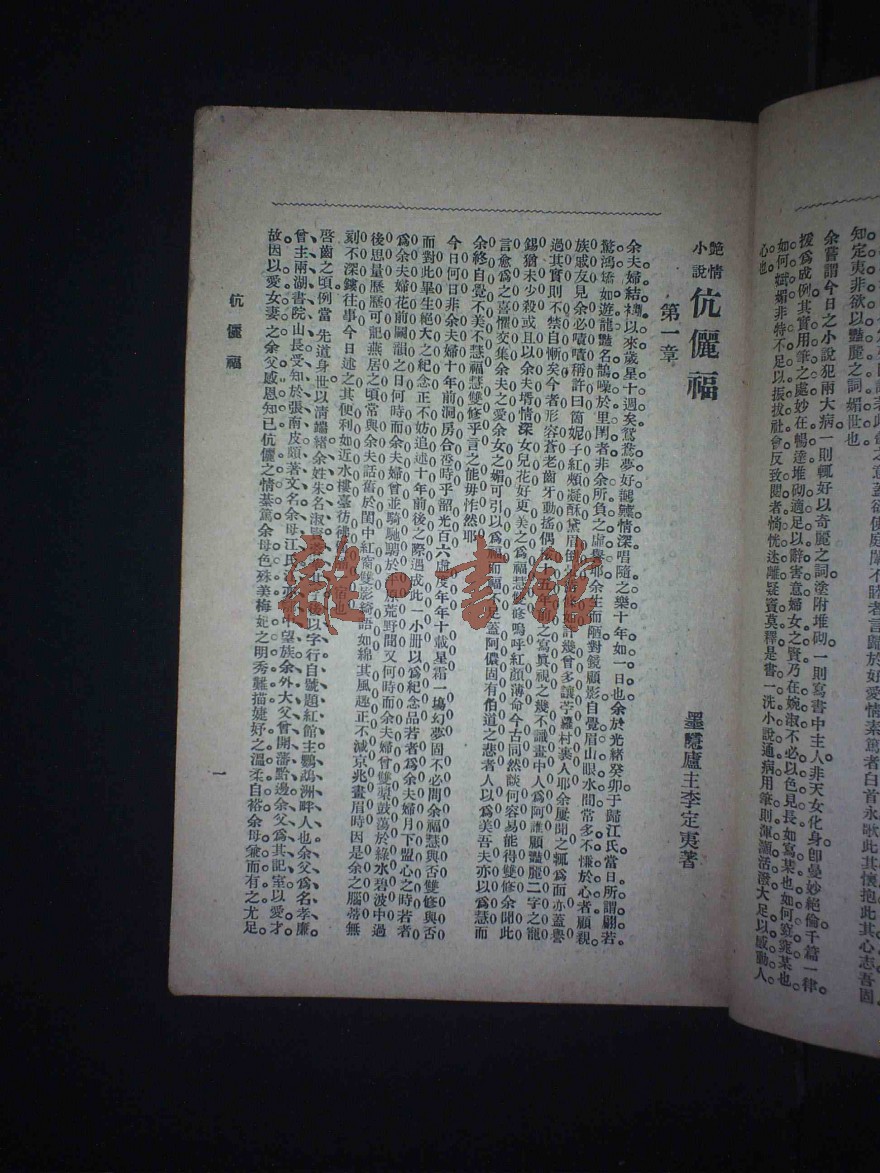 知定夷非欲以豔麗之詞媚世也
余嘗謂今日之小說犯兩大病一則輒好以奇麗之詞塗附堆砌一則寫書中主人非天女化身卽曼妙絕倫千篇一律
援爲成例其實用筆之處妙在暢達堆砌適足以辭害意婦女之賢乃在婉淑不必以色見長如寫某也如何窈窕某也
如何嫵媚非特不足以振拔社會反致閱者惝恍迷離疑竇莫釋是書一洗小說通病用筆則渾灝活潑大足以感動人
心也
艷情小說 伉儷福
墨隱廬主李定夷著
第一章
余夫婦結褵以來歲星十週矣鴛鴦夢好鶼鰈情深唱隨之樂十年如一日也余於光緖癸卯于歸江氏當日所謂翩若
驚鴻嬌如遊龍豔名鵲噪於里閈者非余所負之虛譽耶余生而陋對鏡顧影自覺眉山眼水間常多不慊於心者顧親
族戚友見余必嘖嘖稱許曰箇妮子紅頰凝酥黛眉如許幾曾多讓苧蘿村裏人耶余屢聞之輒爲而亦蓋譽
過其實則不禁自慚矣今者形容蒼老齒牙動搖偶前之寫眞視之幾不識畫中人爲阿誰顧豔麗二字之寵
錫猶未少殺或且以余夫壻情深女兒花好更美之爲福慧雙修嗚呼紅顏薄命今古同然談何容易能得雙修余聞此
言愈爲之喜懼交集余夫之愛余女之媚可引以爲福而福不足蓋阿儂固有伯道之悲者人以爲美吾夫亦以爲慧而
余終自覺不美不慧福慧雙修乎言之能毋怍然耶
今日何日非余夫婦十年前洞房合卺時乎韶光百六虛度年年十載星霜一塲幻夢固不必問余福慧與否雙修與否
而對此畢生絕大之紀念正不妨追述十年前後之際遇成此一小册以爲紀念品若者爲余夫婦月下盟心之時若者
爲余夫婦花前鬭韻之日何時而余夫婦曾並騎馳騁於平原荒野間又何時而余夫婦曾雙槳鼓蕩於綠水碧波中過
後思量歷歷可記燕居之頃常與余夫話舊於閨中紅窗雙影綺語如綿其風趣正不減京兆畫眉時因是余之腦蒂無
刻不深鏤往事今日述之其便利如近水樓臺彷彿
啓齒之頃例當先道身世以淸端緖余姓朱名淑後以字行自號題紅館主鸚鵡洲畔人也余父爲名孝廉
曾主兩湖書院山長受知於張南皮頗著文名余母江氏亦中望族余外大父曾開藩黔邊余父爲其記室以愛才
故因以愛女妻之余父感恩知已伉儷之情綦篤余母色殊美梅妃之明秀難描婕妤之溫柔自裕余母兼而有之尤足
伉儷福
一
雜·書館